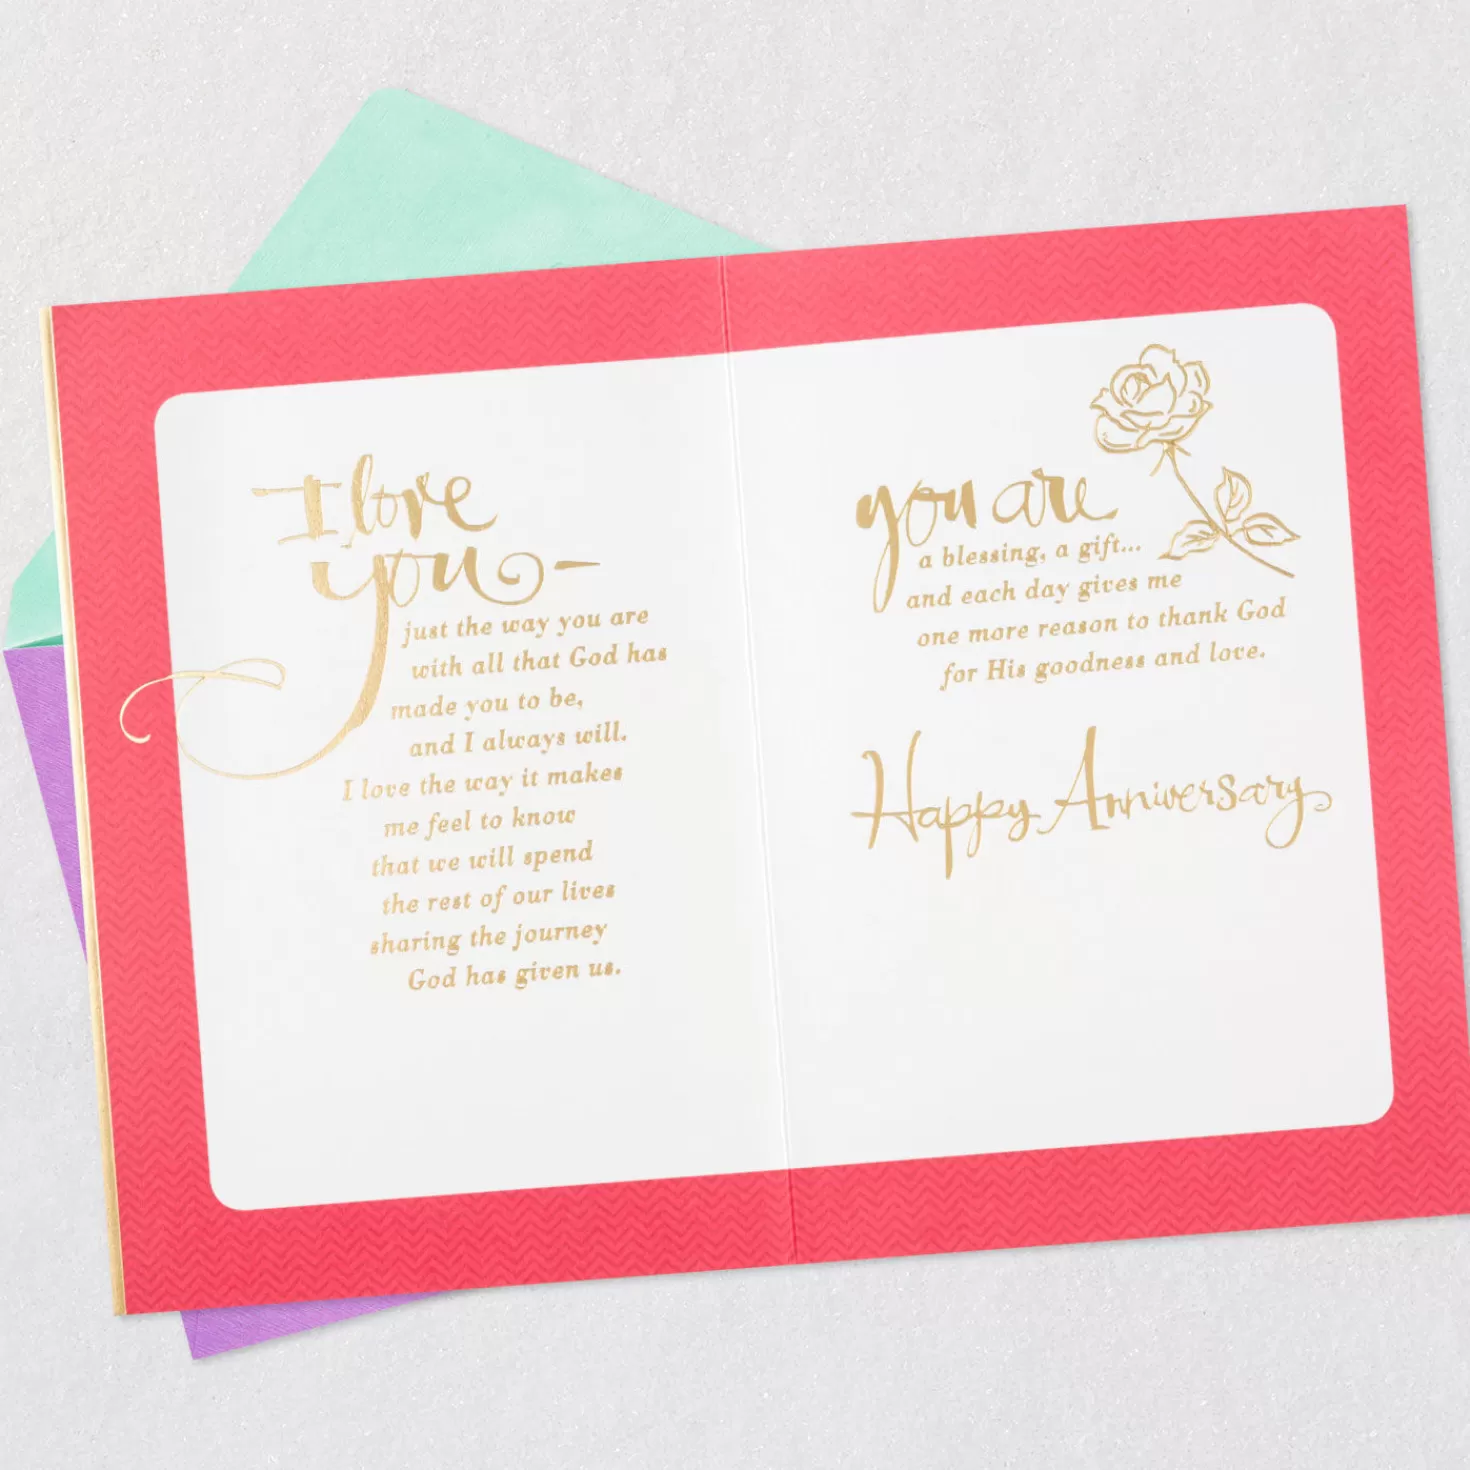 I love
you –
just the way you are
with all that God has
made you to be,
and I always will.
I love the way it makes
me feel to know
that we will spend
the rest of our lives
sharing the journey
God has given us.
you are
a blessing, a gift...
and each day gives me
one more reason to thank God
for His goodness and love.
Happy Anniversary